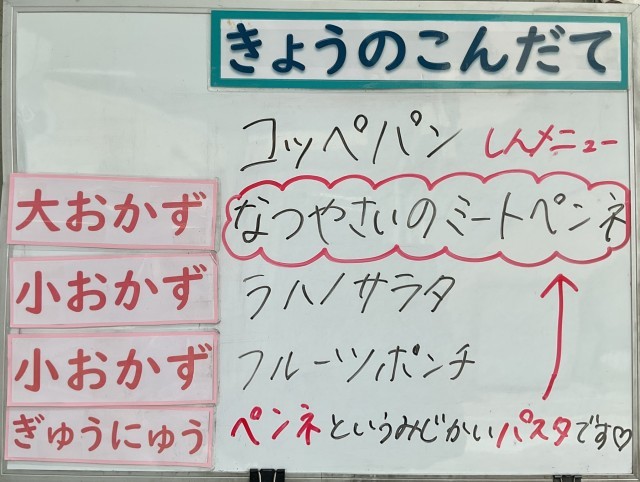 きょうのこんだて
コッペパン しんメニュー
大おかず なつやさいのミートペンネ
小おかず ラハノサラタ
小おかず フルーツポンチ
ぎゅうにゅう ペンネというみじかいパスタです♡